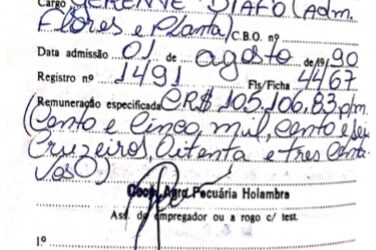 Cargo GERENTE DIAFO (Adm.
Flores e Planta) C.B.O. nº
Data admissão 01 de agosto de 1990
Registro nº 1491 Fls/Ficha 4467
Remuneração especificada CR$ 105.106,83 p/m
(Cento e Cinco, mil, Cento e seis
Cruzeiros, Oitenta e Tres Centa-
vos)
Coop. Agro Pecuária Holambra
Ass. do empregador ou a rogo c/ test.
1º